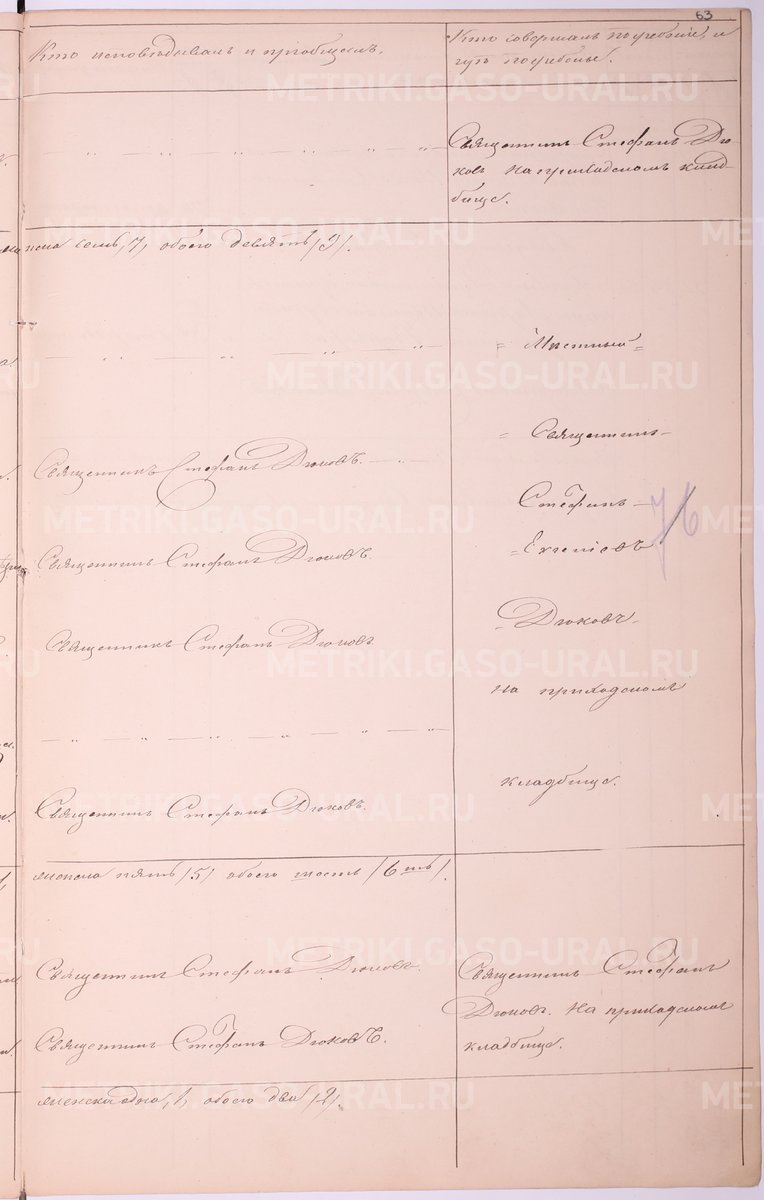 63
Кто исповѣдывалъ и пріобщалъ.
Кто совершалъ погребеніе, и
гдѣ погребены.
Священникъ Стефанъ Дю
ковъ на приходскомъ клад
бищѣ.
семь, 7, обоего девять /9/.
Мѣстный
Священникъ
Священникъ Стефанъ Дюковъ.
Стефанъ
76
Священникъ Стефанъ Дюковъ.
Евгеніевъ
Дюковъ
Священникъ Стефанъ Дюковъ
на приходскомъ
кладбищѣ.
Священникъ Стефанъ Дюковъ.
женска пять /5/ обоего шесть /6ть/.
Священникъ Стефанъ Дюковъ.
Священникъ Стефанъ
Дюковъ. на приходскомъ
Священникъ Стефанъ Дюковъ.
кладбищѣ.
женска одна, 1, обоего два /2/.
METRIKI.GASO-URAL.RU